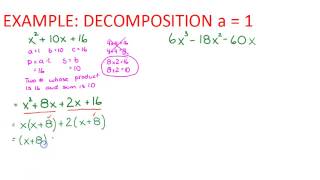 EXAMPLE: DECOMPOSITION a = 1
x² + 10x + 16
a=1 b=10 c=16
p = a·c s = b
= 16 = 10
Two #s whose product
is 16 and sum is 10
4x4=16
4+4=8
8x2=16
8+2=10
= x² + 8x + 2x + 16
= x(x+8) + 2(x+8)
= (x+8)
6x³ - 18x² - 60x